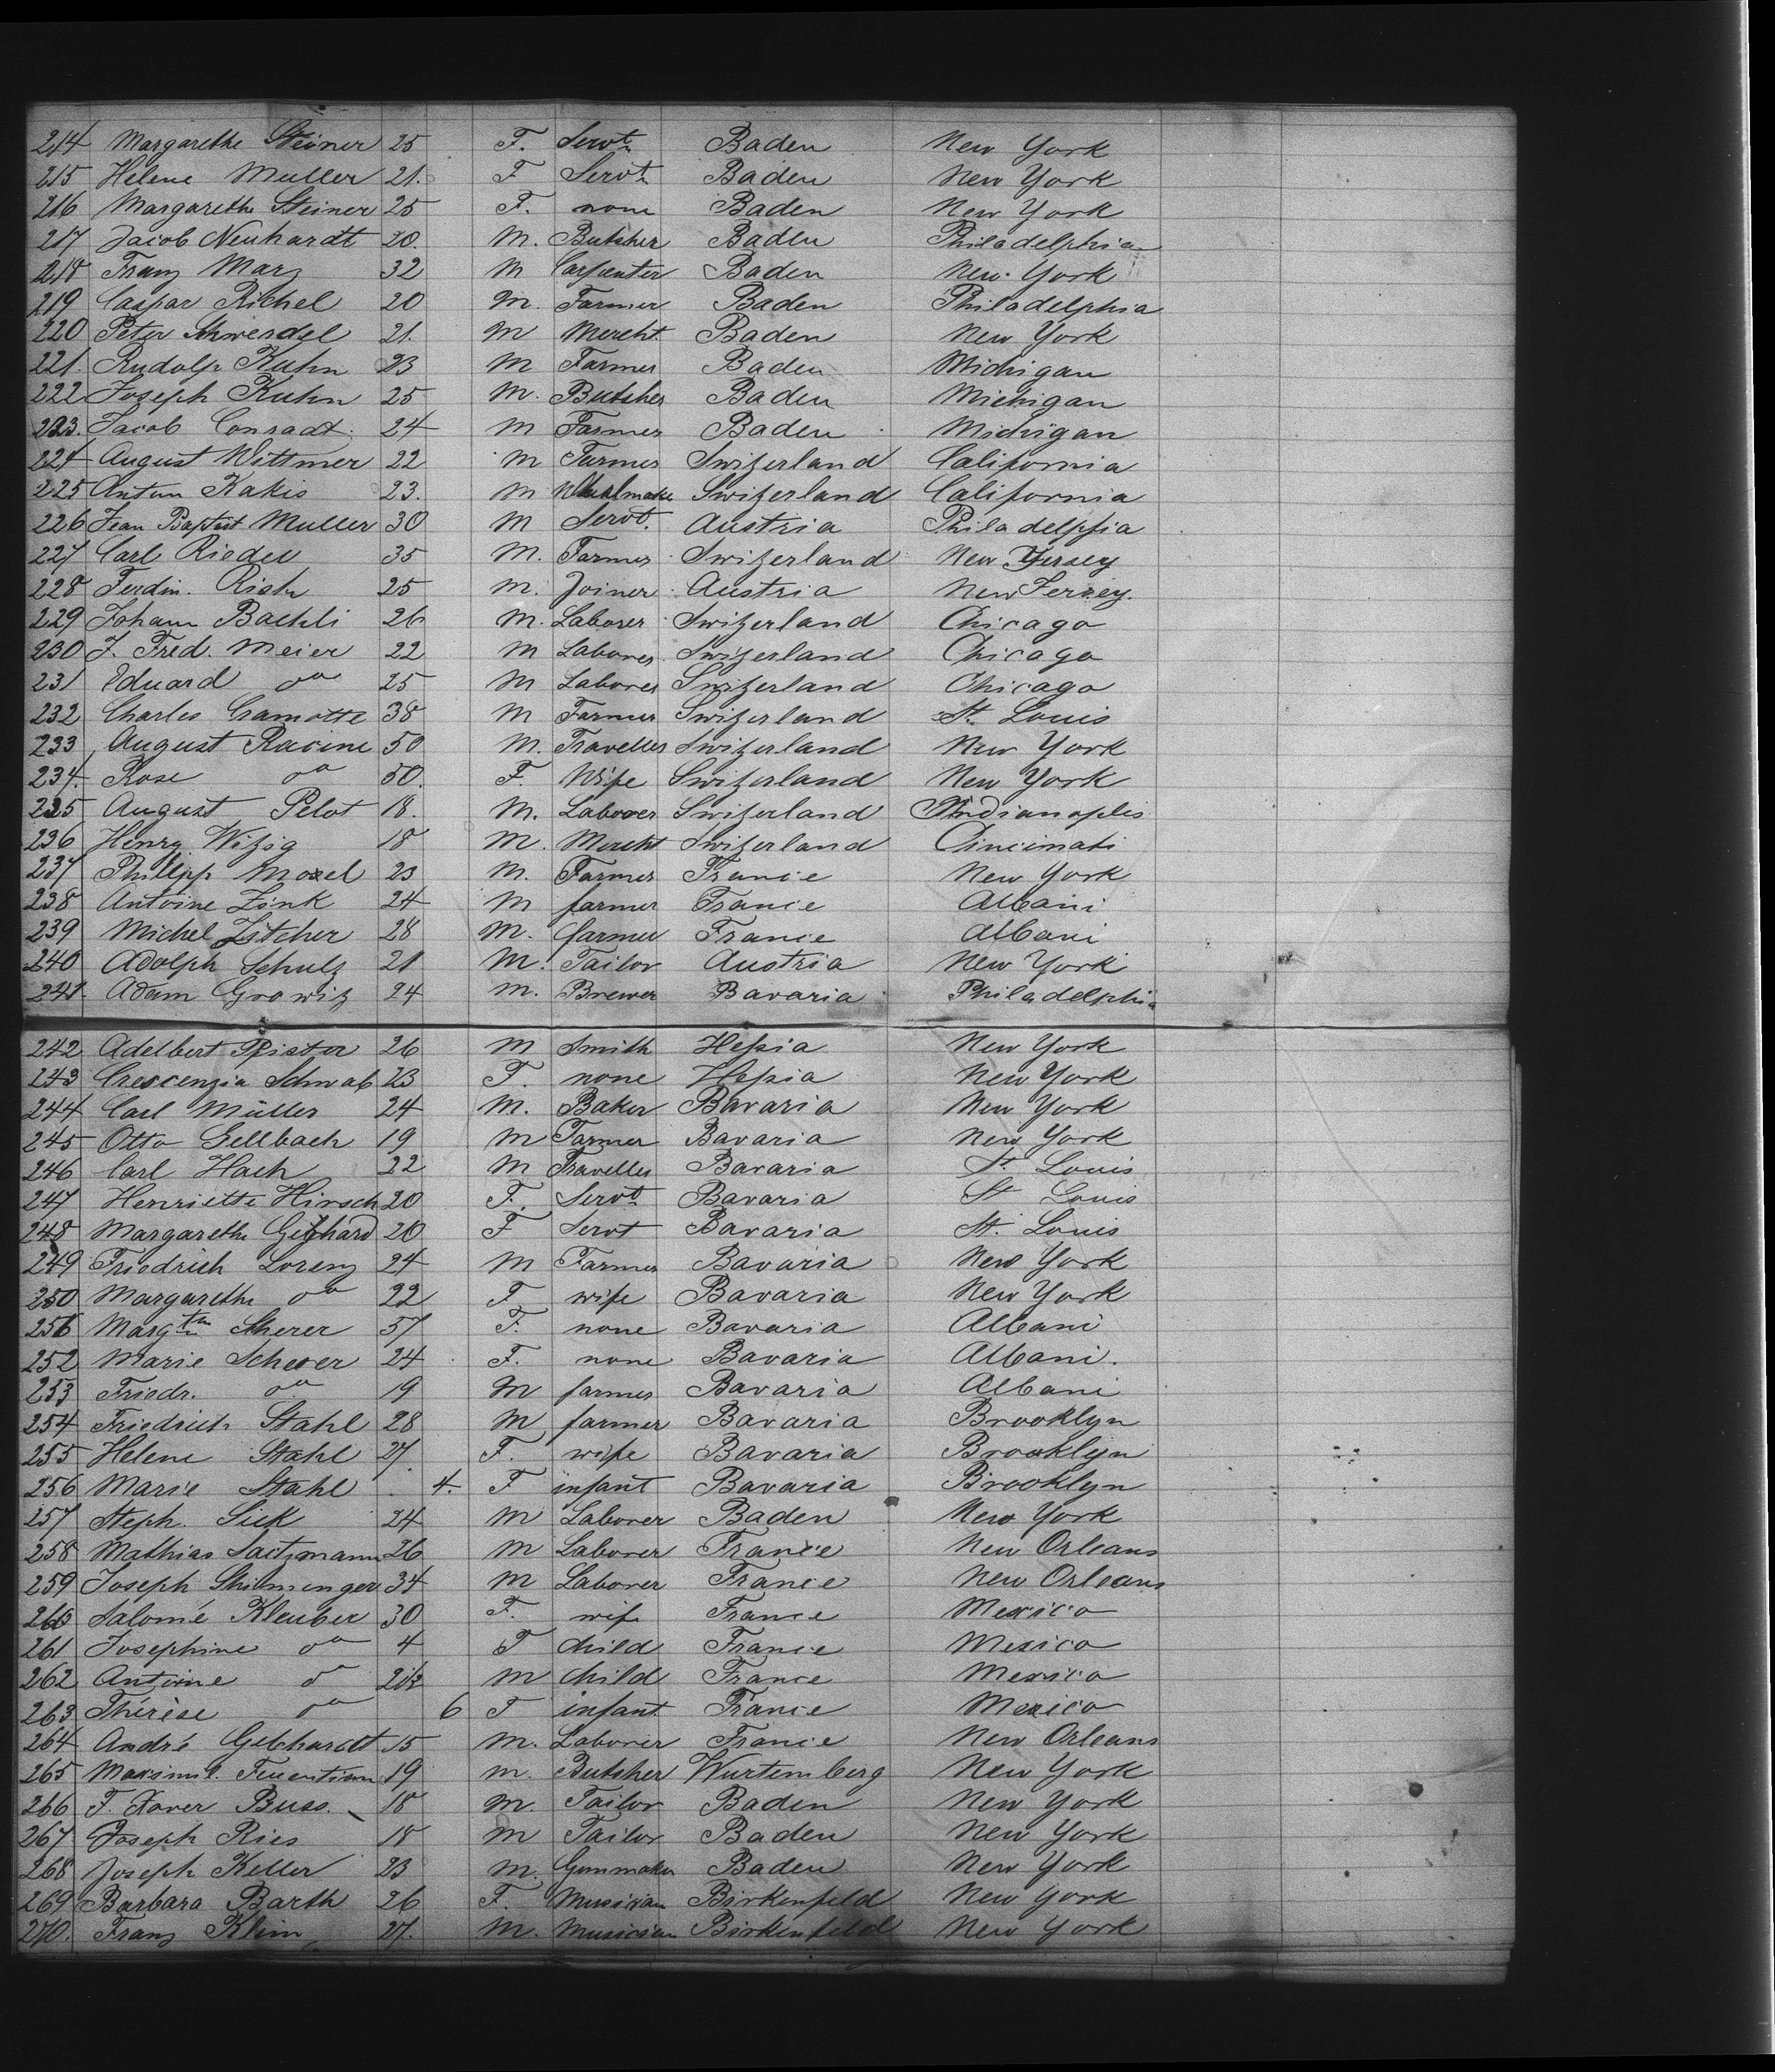 214 Margarethe Steiner 25 F. Servt. Baden New York
215 Helene Muller 21. F Servt. Baden New York
216 Margarethe Steiner 25 F. none Baden New York
217 Jacob Neuhardt 20. M. Butcher Baden Philadelphia
218 Franz Marz 32 M Carpenter Baden New York
219 Caspar Richel 20 M. Farmer Baden Philadelphia
220 Peter Schwendel 21. M Mercht. Baden New York
221. Rudolp Kuhn 23 M Farmer Baden Michigan
222 Joseph Kuhn 25 M. Butcher Baden Michigan
223. Jacob Conradt 24 M Farmer Baden Michigan
224 August Wittmer 22 M Farmer Switzerland California
225 Anton Kakis 23. M Switzerland California
226 Jean Baptist Muller 30 M Servt. Austria Philadelpfia
227 Carl Riedel 35 M. Farmer Switzerland New Jersey
228 Ferdin. 25 M. Joiner Austria New Jersey.
229 Johann Baehli 26 M. Laborer Switzerland Chicago
230 J. Fred. Meier 22 M Laborer Switzerland Chicago
231 Eduard do 25 M Laborer Switzerland Chicago
232 Charles Gramotte 38 M Farmer Switzerland St. Louis
233 August Racine 50 M. Traveller Switzerland New York
234. Rose do 50. F. Wife Switzerland New York
235 August Pelot 18. M. Laborer Switzerland Indianaplis
236 Henry Witzig 18 M. Mercht Switzerland Cincinati
237 Philipp Mosel 23 M. Farmer France New York
238 Antoine Zink 24 M farmer France Albani
239 Michel Zitcher 28 M. farmer France Albani
240 Adolph Schulz 21 M. Tailor Austria New York
241. Adam Growitz 24 M. Brewer Bavaria Philadelphia
242 Adelbert Pfister 26 M Smith Hessia New York
243 Crescenzia Schwab 23 F. none Hessia New York
244 Carl Müller 24 M. Baker Bavaria New York
245 Otto Gellbach 19 M Farmer Bavaria New York
246 Carl Hach 22 M Traveller Bavaria St. Louis
247 Henriette Hirsch 20 F. Servt. Bavaria St Louis
248 Margarethe Gebhard 20 F Servt Bavaria St. Louis
249 Friedrich Lorenz 24 M Farmer Bavaria New York
250 Margarethe do 22 F wife Bavaria New York
256 Margtha Sherer 57 F. none Bavaria Albani
252 Marie Scherer 24 F. none Bavaria Albani.
253 Friedr. do 19 M farmer Bavaria Albani
254 Friedrich Stahl 28 M farmer Bavaria Brooklyn
255 Helene Stahl 27. F. wife Bavaria Brooklyn
256 Marie Stahl 4. F infant Bavaria Brooklyn
257 Steph. Sick 24 M Laborer Baden New York
258 Mathias Saltzmann 26 M Laborer France New Orleans
259 Joseph Shimminger 34 M Laborer France New Orleans
260 Salomé Kleuber 30 F. wife France Mexico
261 Josephine do 4 F child France Mexico
262 Antoine do 2 1/2 M child France Mexico
263 Thérèse do 6 F infant France Mexico
264 André Gebhardt 15 M. Laborer France New Orleans
265 Maximil. 19 M. Butcher Wurtemberg New York
266 F. Xaver Buss. 18 M. Tailor Baden New York
267 Joseph Ries 18 M Tailor Baden New York
268 Joseph Keller 23 M. Gunmaker Baden New York
269 Barbara Barth 26 F. Musician Birkenfeld New York
270. Franz Klein 27. M. Musician Birkenfeld New York